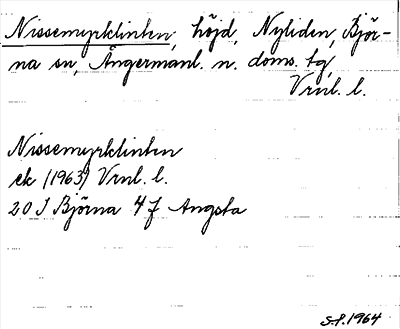 Nissemyrklinten, höjd, Nyliden, Björ-
na sn, Ångermanl. n. doms. tg,
Vrnl. l.
Nissemyrklinten
ek (1963) Vrnl. l.
20 J Björna 4 f Angsta
S.f. 1964